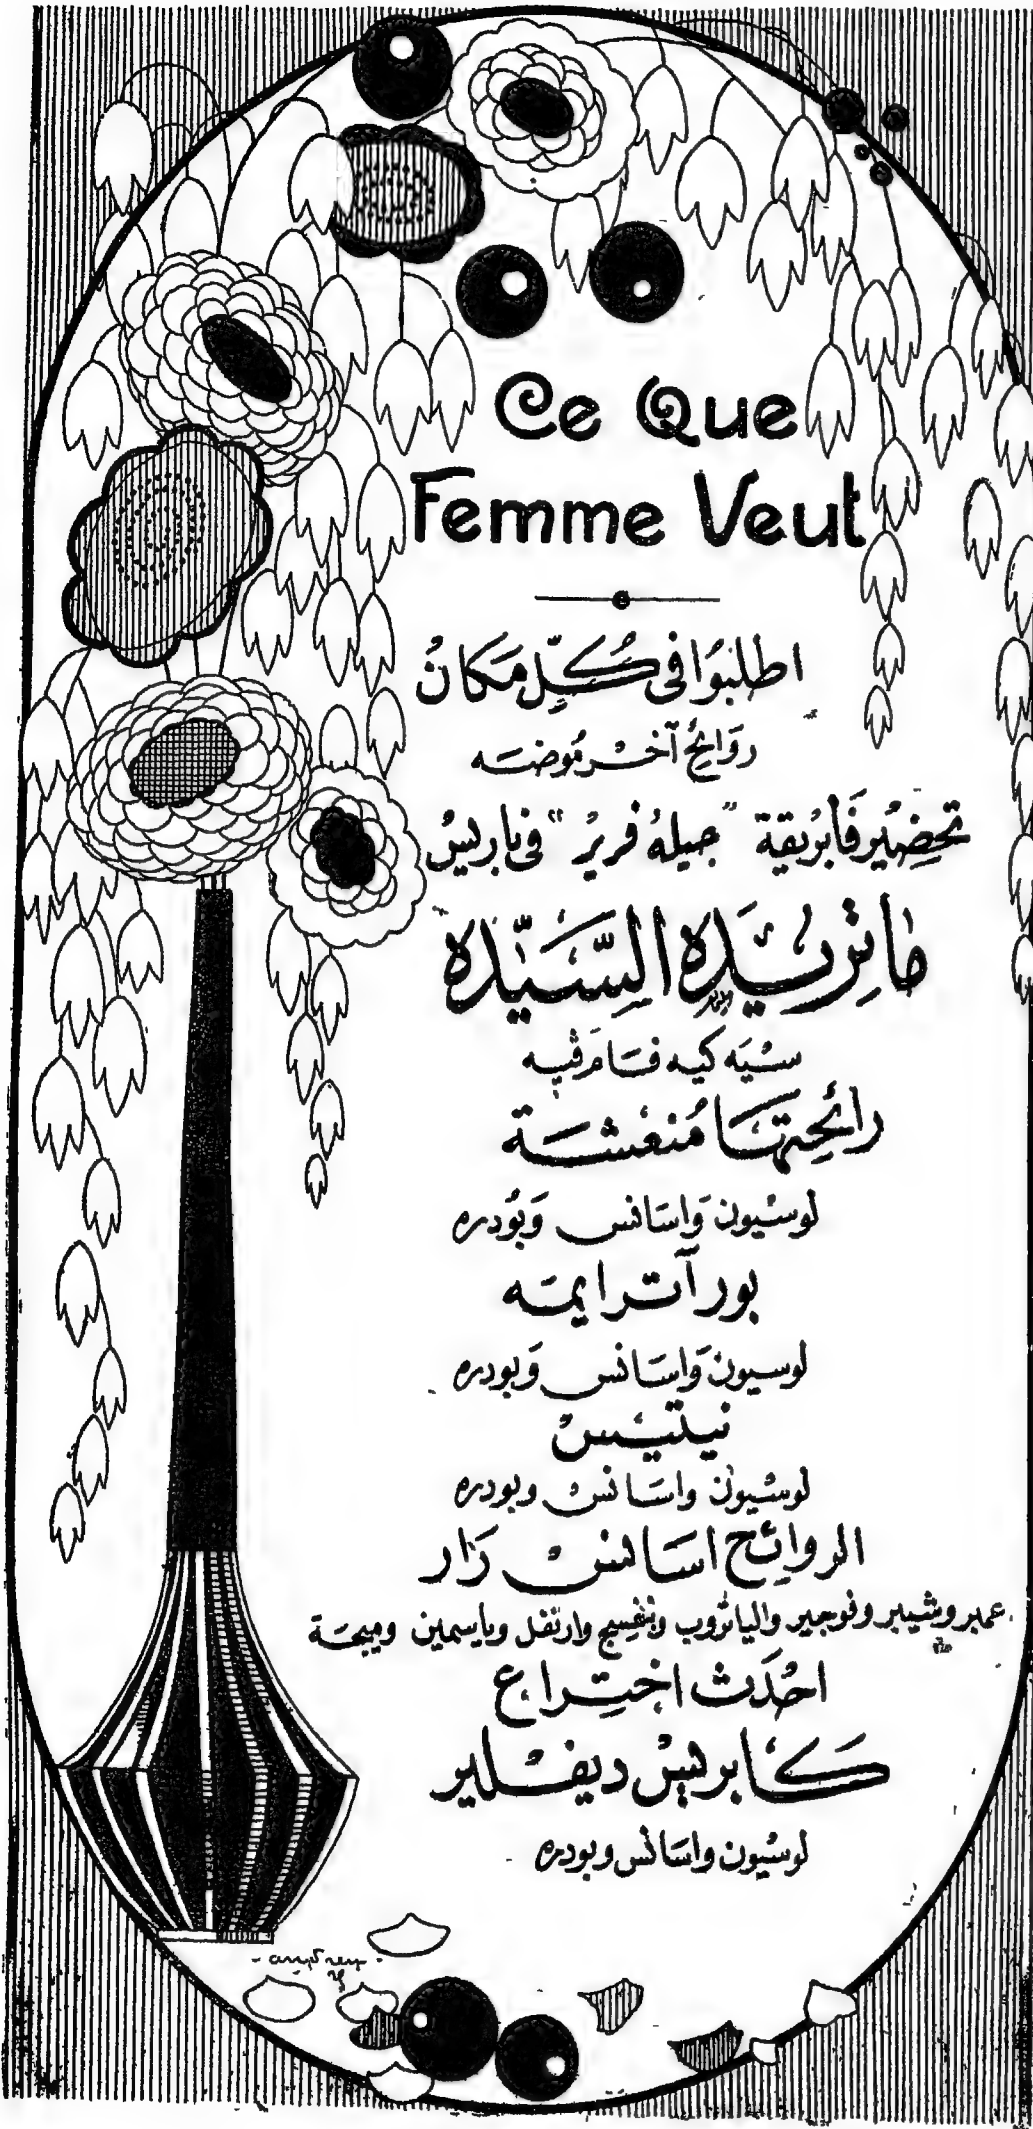 Ce Que
Femme Veut
اطلبوا في كلّ مكان
روائح آخر موضه
تحضير فابريقة "جيله فرير" في باريس
ما تريده السيّده
سيه كيه فام فيه
رائحتها منعشة
لوسيون واسانس وبودره
بور آترايمه
لوسيون واسانس وبودره
نيتيس
لوسيون واسانس وبودره
الروائح اسانس رار
عمبر وشيبر وفوجير والياتروب وبنفسج وارنفل وياسمين
احدث اختراع
كابريس ديفلير
لوسيون واسانس وبودره